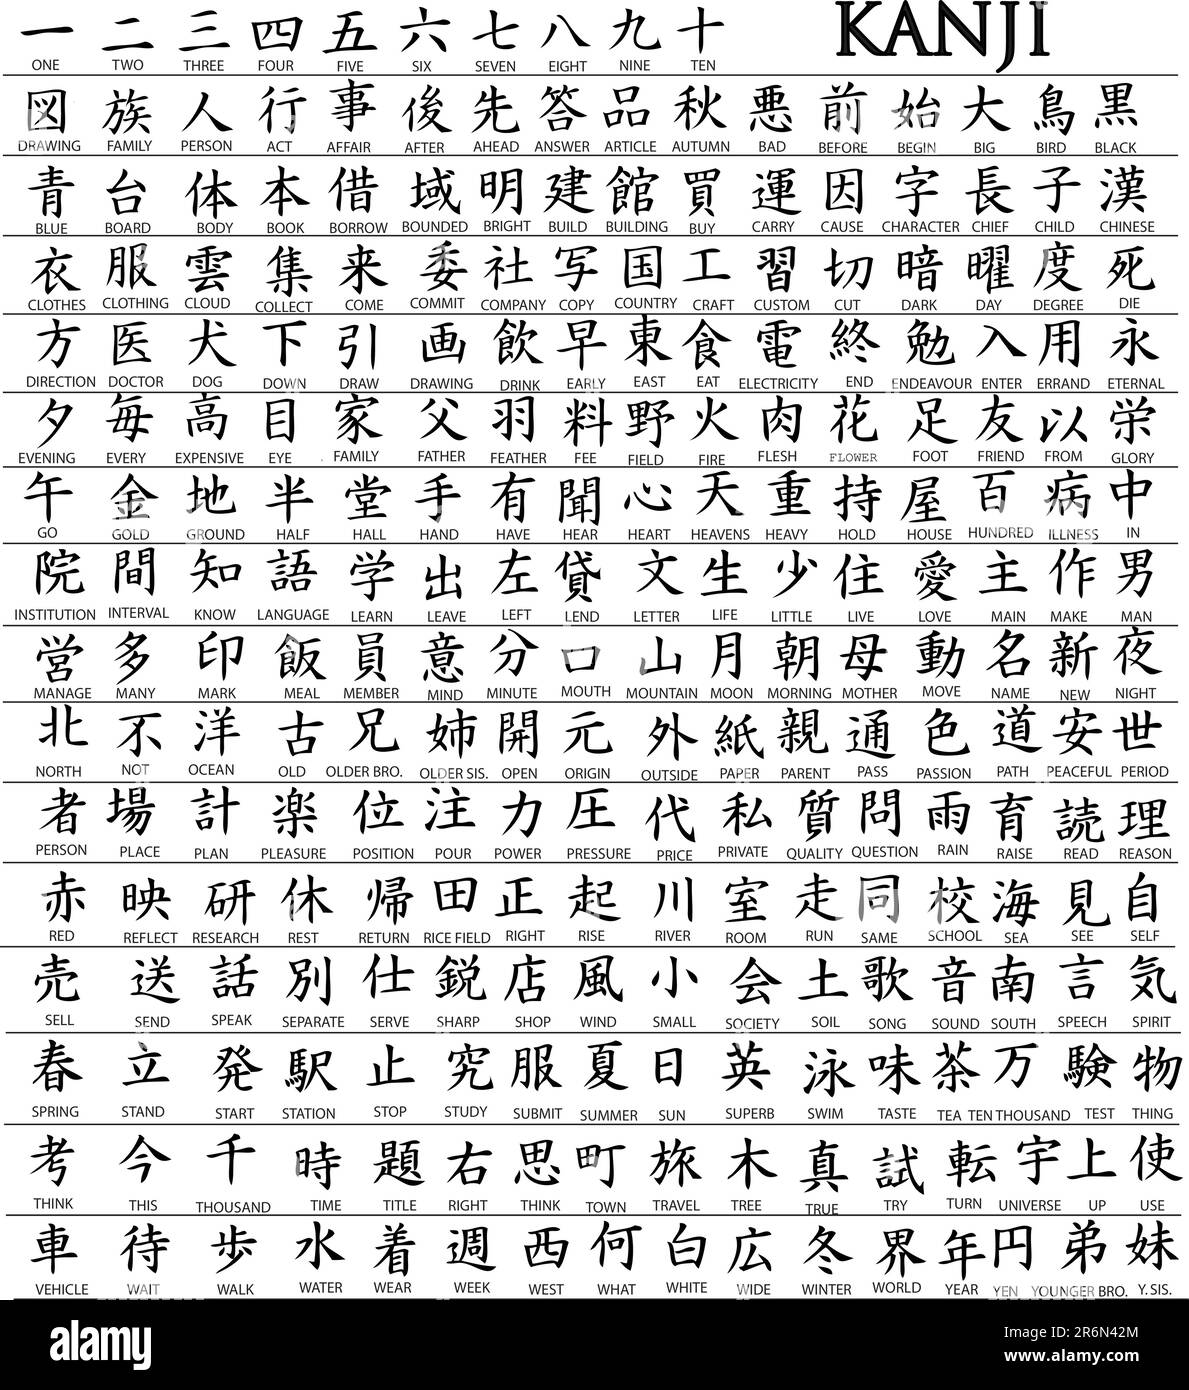 KANJI
一 二 三 四 五 六 七 八 九 十
ONE TWO THREE FOUR FIVE SIX SEVEN EIGHT NINE TEN
図 族 人 行 事 後 先 答 品 秋 悪 前 始 大 鳥 黒
DRAWING FAMILY PERSON ACT AFFAIR AFTER AHEAD ANSWER ARTICLE AUTUMN BAD BEFORE BEGIN BIG BIRD BLACK
青 台 体 本 借 域 明 建 館 買 運 因 字 長 子 漢
BLUE BOARD BODY BOOK BORROW BOUNDED BRIGHT BUILD BUILDING BUY CARRY CAUSE CHARACTER CHIEF CHILD CHINESE
衣 服 雲 集 来 委 社 写 国 工 習 切 暗 曜 度 死
CLOTHES CLOTHING CLOUD COLLECT COME COMMIT COMPANY COPY COUNTRY CRAFT CUSTOM CUT DARK DAY DEGREE DIE
方 医 犬 下 引 画 飲 早 東 食 電 終 勉 入 用 永
DIRECTION DOCTOR DOG DOWN DRAW DRAWING DRINK EARLY EAST EAT ELECTRICITY END ENDEAVOUR ENTER ERRAND ETERNAL
夕 毎 高 目 家 父 羽 料 野 火 肉 花 足 友 以 栄
EVENING EVERY EXPENSIVE EYE FAMILY FATHER FEATHER FEE FIELD FIRE FLESH FLOWER FOOT FRIEND FROM GLORY
午 金 地 半 堂 手 有 聞 心 天 重 持 屋 百 病 中
GO GOLD GROUND HALF HALL HAND HAVE HEAR HEART HEAVENS HEAVY HOLD HOUSE HUNDRED ILLNESS IN
院 間 知 語 学 出 左 貸 文 生 少 住 愛 主 作 男
INSTITUTION INTERVAL KNOW LANGUAGE LEARN LEAVE LEFT LEND LETTER LIFE LITTLE LIVE LOVE MAIN MAKE MAN
営 多 印 飯 員 意 分 口 山 月 朝 母 動 名 新 夜
MANAGE MANY MARK MEAL MEMBER MIND MINUTE MOUTH MOUNTAIN MOON MORNING MOTHER MOVE NAME NEW NIGHT
北 不 洋 古 兄 姉 開 元 外 紙 親 通 色 道 安 世
NORTH NOT OCEAN OLD OLDER BRO. OLDER SIS. OPEN ORIGIN OUTSIDE PAPER PARENT PASS PASSION PATH PEACEFUL PERIOD
者 場 計 楽 位 注 力 圧 代 私 質 問 雨 育 読 理
PERSON PLACE PLAN PLEASURE POSITION POUR POWER PRESSURE PRICE PRIVATE QUALITY QUESTION RAIN RAISE READ REASON
赤 映 研 休 帰 田 正 起 川 室 走 同 校 海 見 自
RED REFLECT RESEARCH REST RETURN RICE FIELD RIGHT RISE RIVER ROOM RUN SAME SCHOOL SEA SEE SELF
売 送 話 別 仕 鋭 店 風 小 会 土 歌 音 南 言 気
SELL SEND SPEAK SEPARATE SERVE SHARP SHOP WIND SMALL SOCIETY SOIL SONG SOUND SOUTH SPEECH SPIRIT
春 立 発 駅 止 究 服 夏 日 英 泳 味 茶 万 験 物
SPRING STAND START STATION STOP STUDY SUBMIT SUMMER SUN SUPERB SWIM TASTE TEA TEN THOUSAND TEST THING
考 今 千 時 題 右 思 町 旅 木 真 試 転 宇 上 使
THINK THIS THOUSAND TIME TITLE RIGHT THINK TOWN TRAVEL TREE TRUE TRY TURN UNIVERSE UP USE
車 待 歩 水 着 週 西 何 白 広 冬 界 年 円 弟 妹
VEHICLE WAIT WALK WATER WEAR WEEK WEST WHAT WHITE WIDE WINTER WORLD YEAR YEN YOUNGER BRO. Y. SIS.
alamy
Image ID: 2R6N42M
www.alamy.com